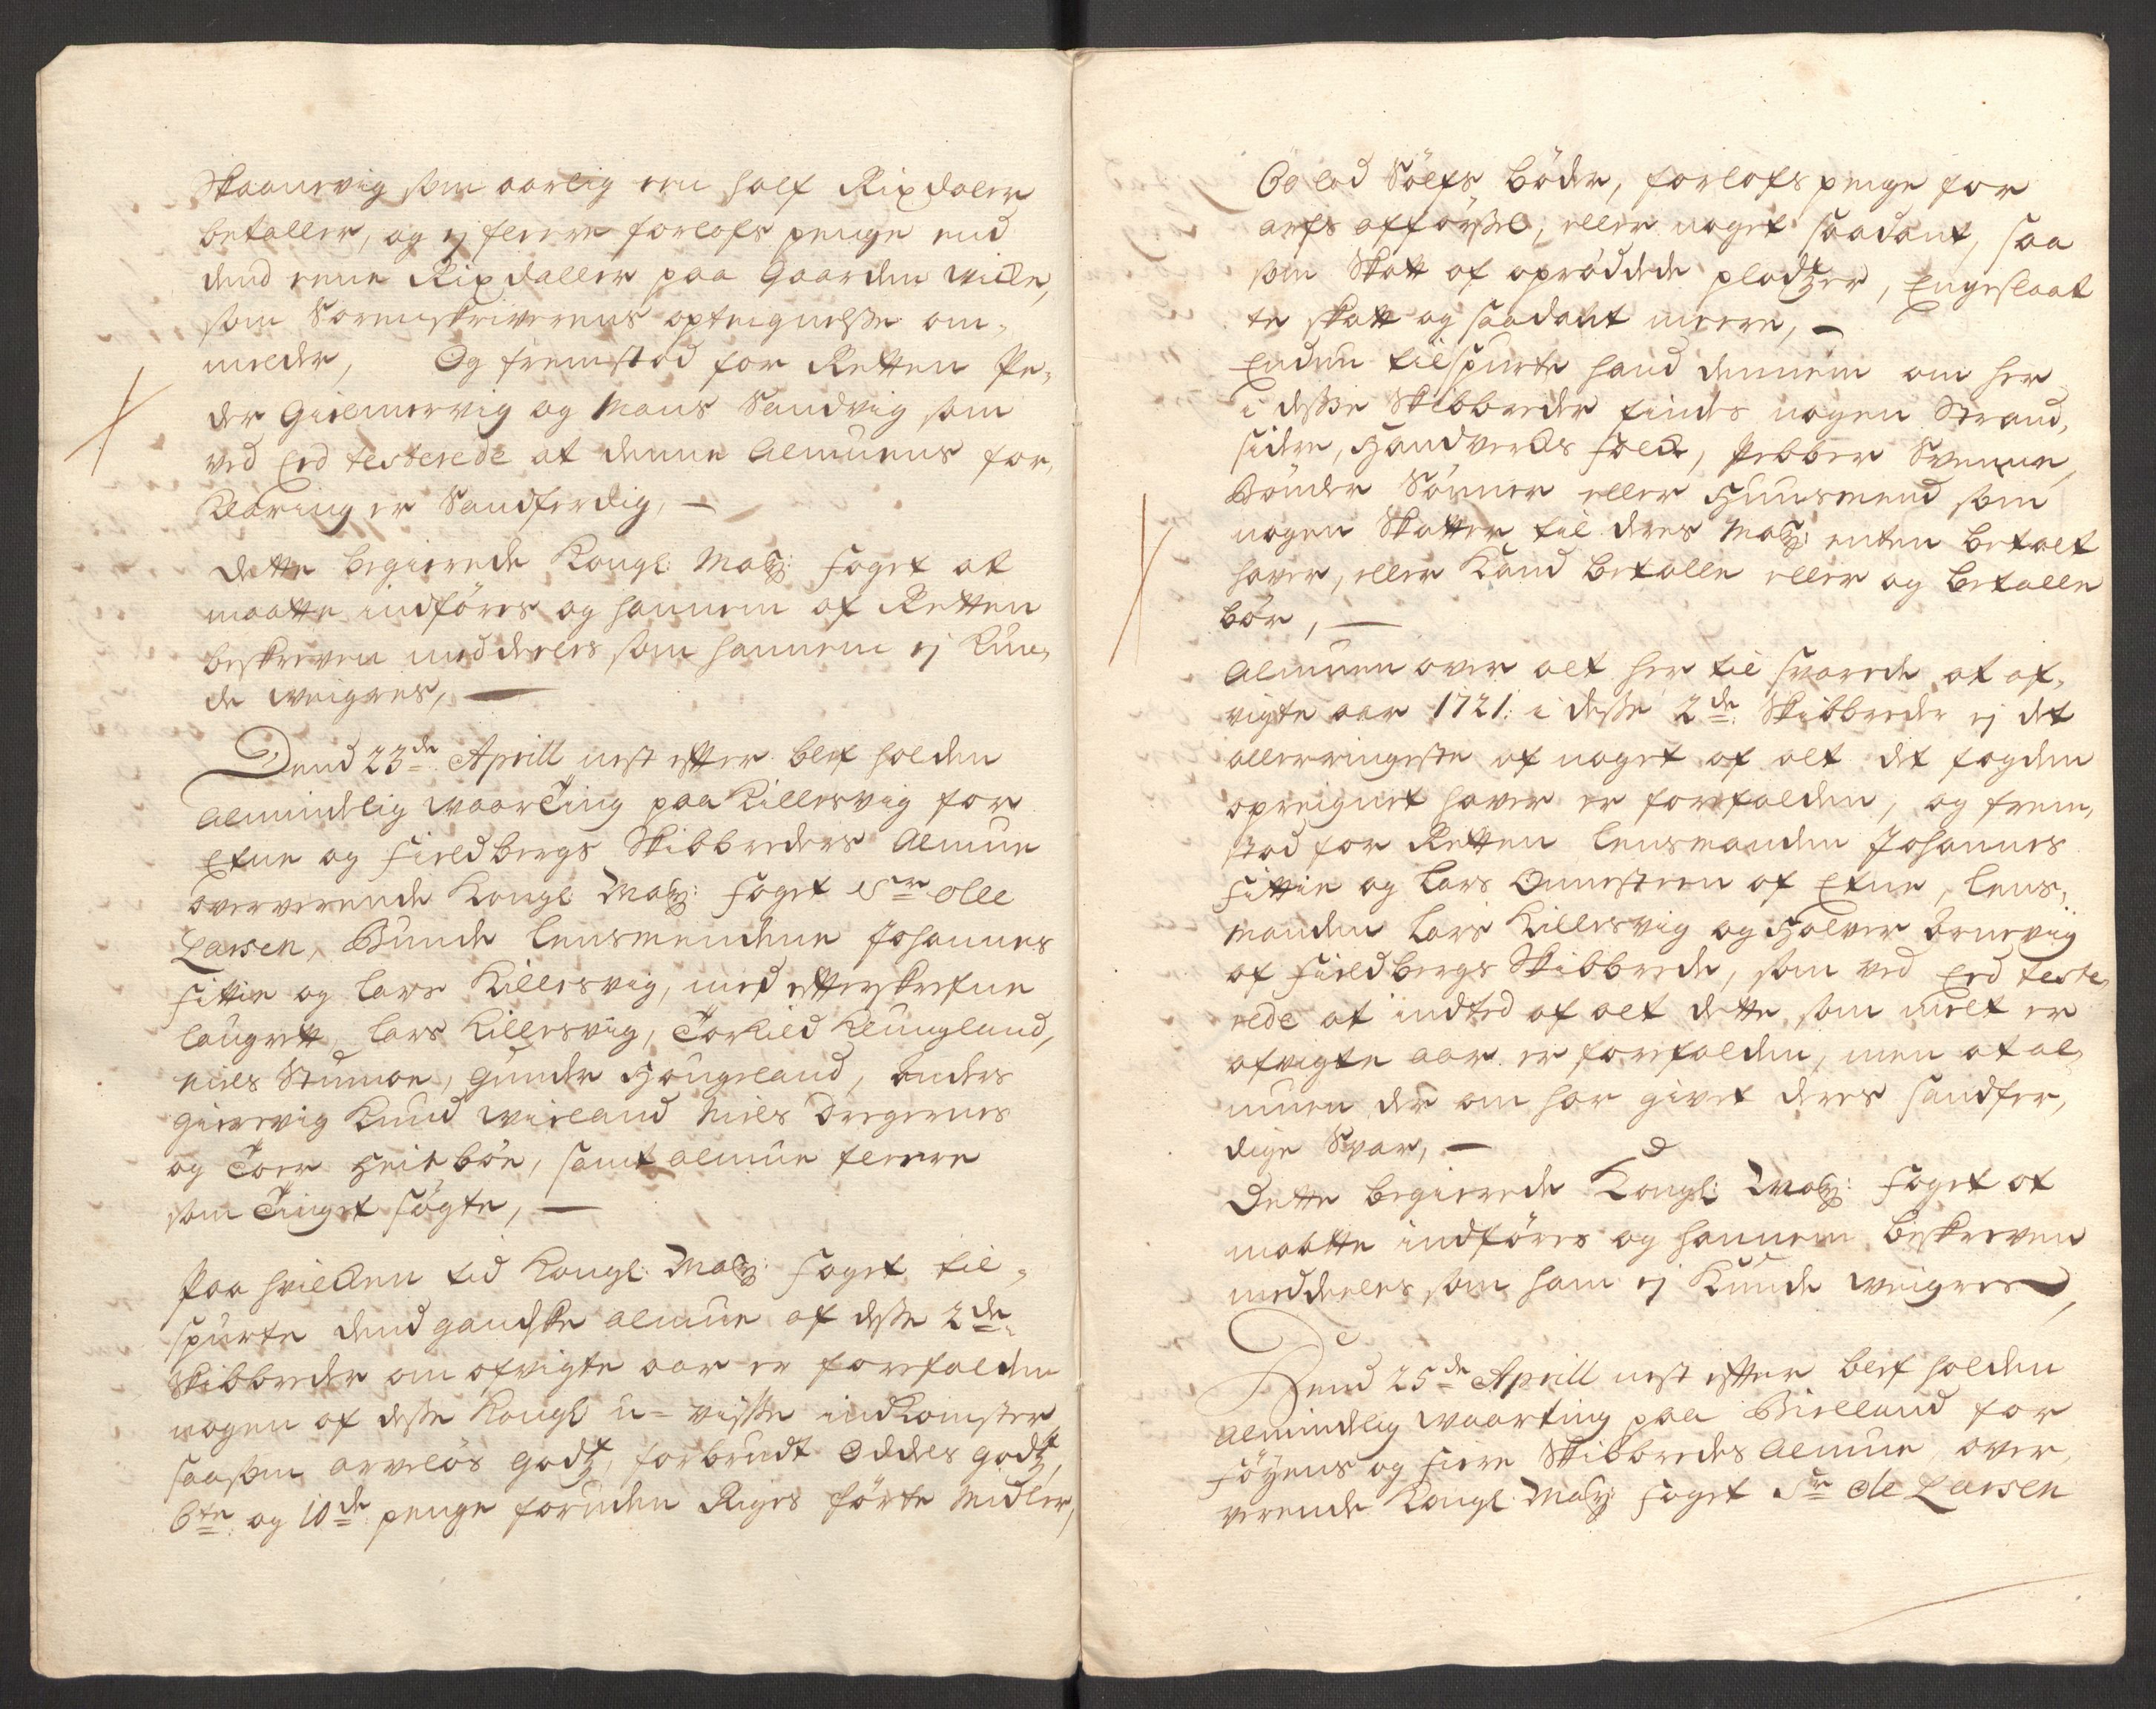 Skaanevig som aarlig een half Rixdaler
betaller, og ej fleere forlofs penge end
dend eene Rixdaller paa Gaarden Wicke,
som Sorenskriverens opteignelsse om-
melder, Og fremstod for Retten Pe-
der Gielmervig og Mons Sandvig som
ved Eed testerede at denne Almuens for-
klaring er Sandferdig, -
Dette begierede Kongl: May: foget at
maatte indføres og hannem af Retten
beskreven meddeeles som hannem ej kun-
de weigres, -
Dend 23de Aprill nest effter blef holden
Almindelig waarting paa Killesvig for
Etne og Fieldbergs Skibbreders Almue
oververende Kongl May: foget Sr Olle
Larsen, Bunde lensmendene Johannes
Fittie og Lars Killesvig, med effterskrefne
laugrett, Lars Killesvig, Torkild Klungland,
Niels Stumoe, Gunder Hougeland, Anders
Gierevig Knud Wieland Niels Dregernes
og Toer Heitbøe, samt Almue fleere
som Tinget søgte, -
Paa hvilken tid Kongl: May: foget til-
spurte dend gandske Almue af desse 2de
Skibbreder om afvigte aar er forefalden
nogen af desse Kongl u-visse indkomster
saasom arveløs godtz, forbrudt Oddels godtz,
6te og 10de penge foruden Riges førte Midler,
Bølod Sølfs bøder, forlofs penge for
arfs afførssel, eller noget saadant, saa
som Skatt af oprøddede pladtzer, Engeslaat
te skatt og saadant meere, -
Enden tilspurte hand dennem om her
i desse Skibbreder findes nogen Strand,
sidere, Handverks folk, Pebber Svenne,
Bønder Sønner eller Huusmend som
nogen Skatter til deres May: enten betalt
haver, eller kand betalle eller og betalle
bør, -
Almuen over alt her til svarede at af-
vigte aar 1721: i desse 2de Skibbreder ej det
allerringeste af noget af alt det fogden
opreignet haver er forefalden, og frem-
stod for Retten lensmanden Johannes
Fittie og Lars Onnesteen af Etne, lens-
manden Lars Killesvig og Halver Ørnevig
af Fieldbergs Skibbrede, som ved Eed teste-
rede at indted af alt dette som melt er
afvigte aar er forefalden, men at al-
muen der om har givet deres sandfer-
dige Svar, -
Dette begierede Kongl: May: foget at
maatte indføres og hannem beskreven
meddeeles som ham ej kunde weigres,
Dend 25de Aprill nest effter blef holden
Almindelig waarting paa Bielland for
Føyens og Fiere Skibbredes Almue, over-
verende Kongl: May: foget Sr Ole Larsen